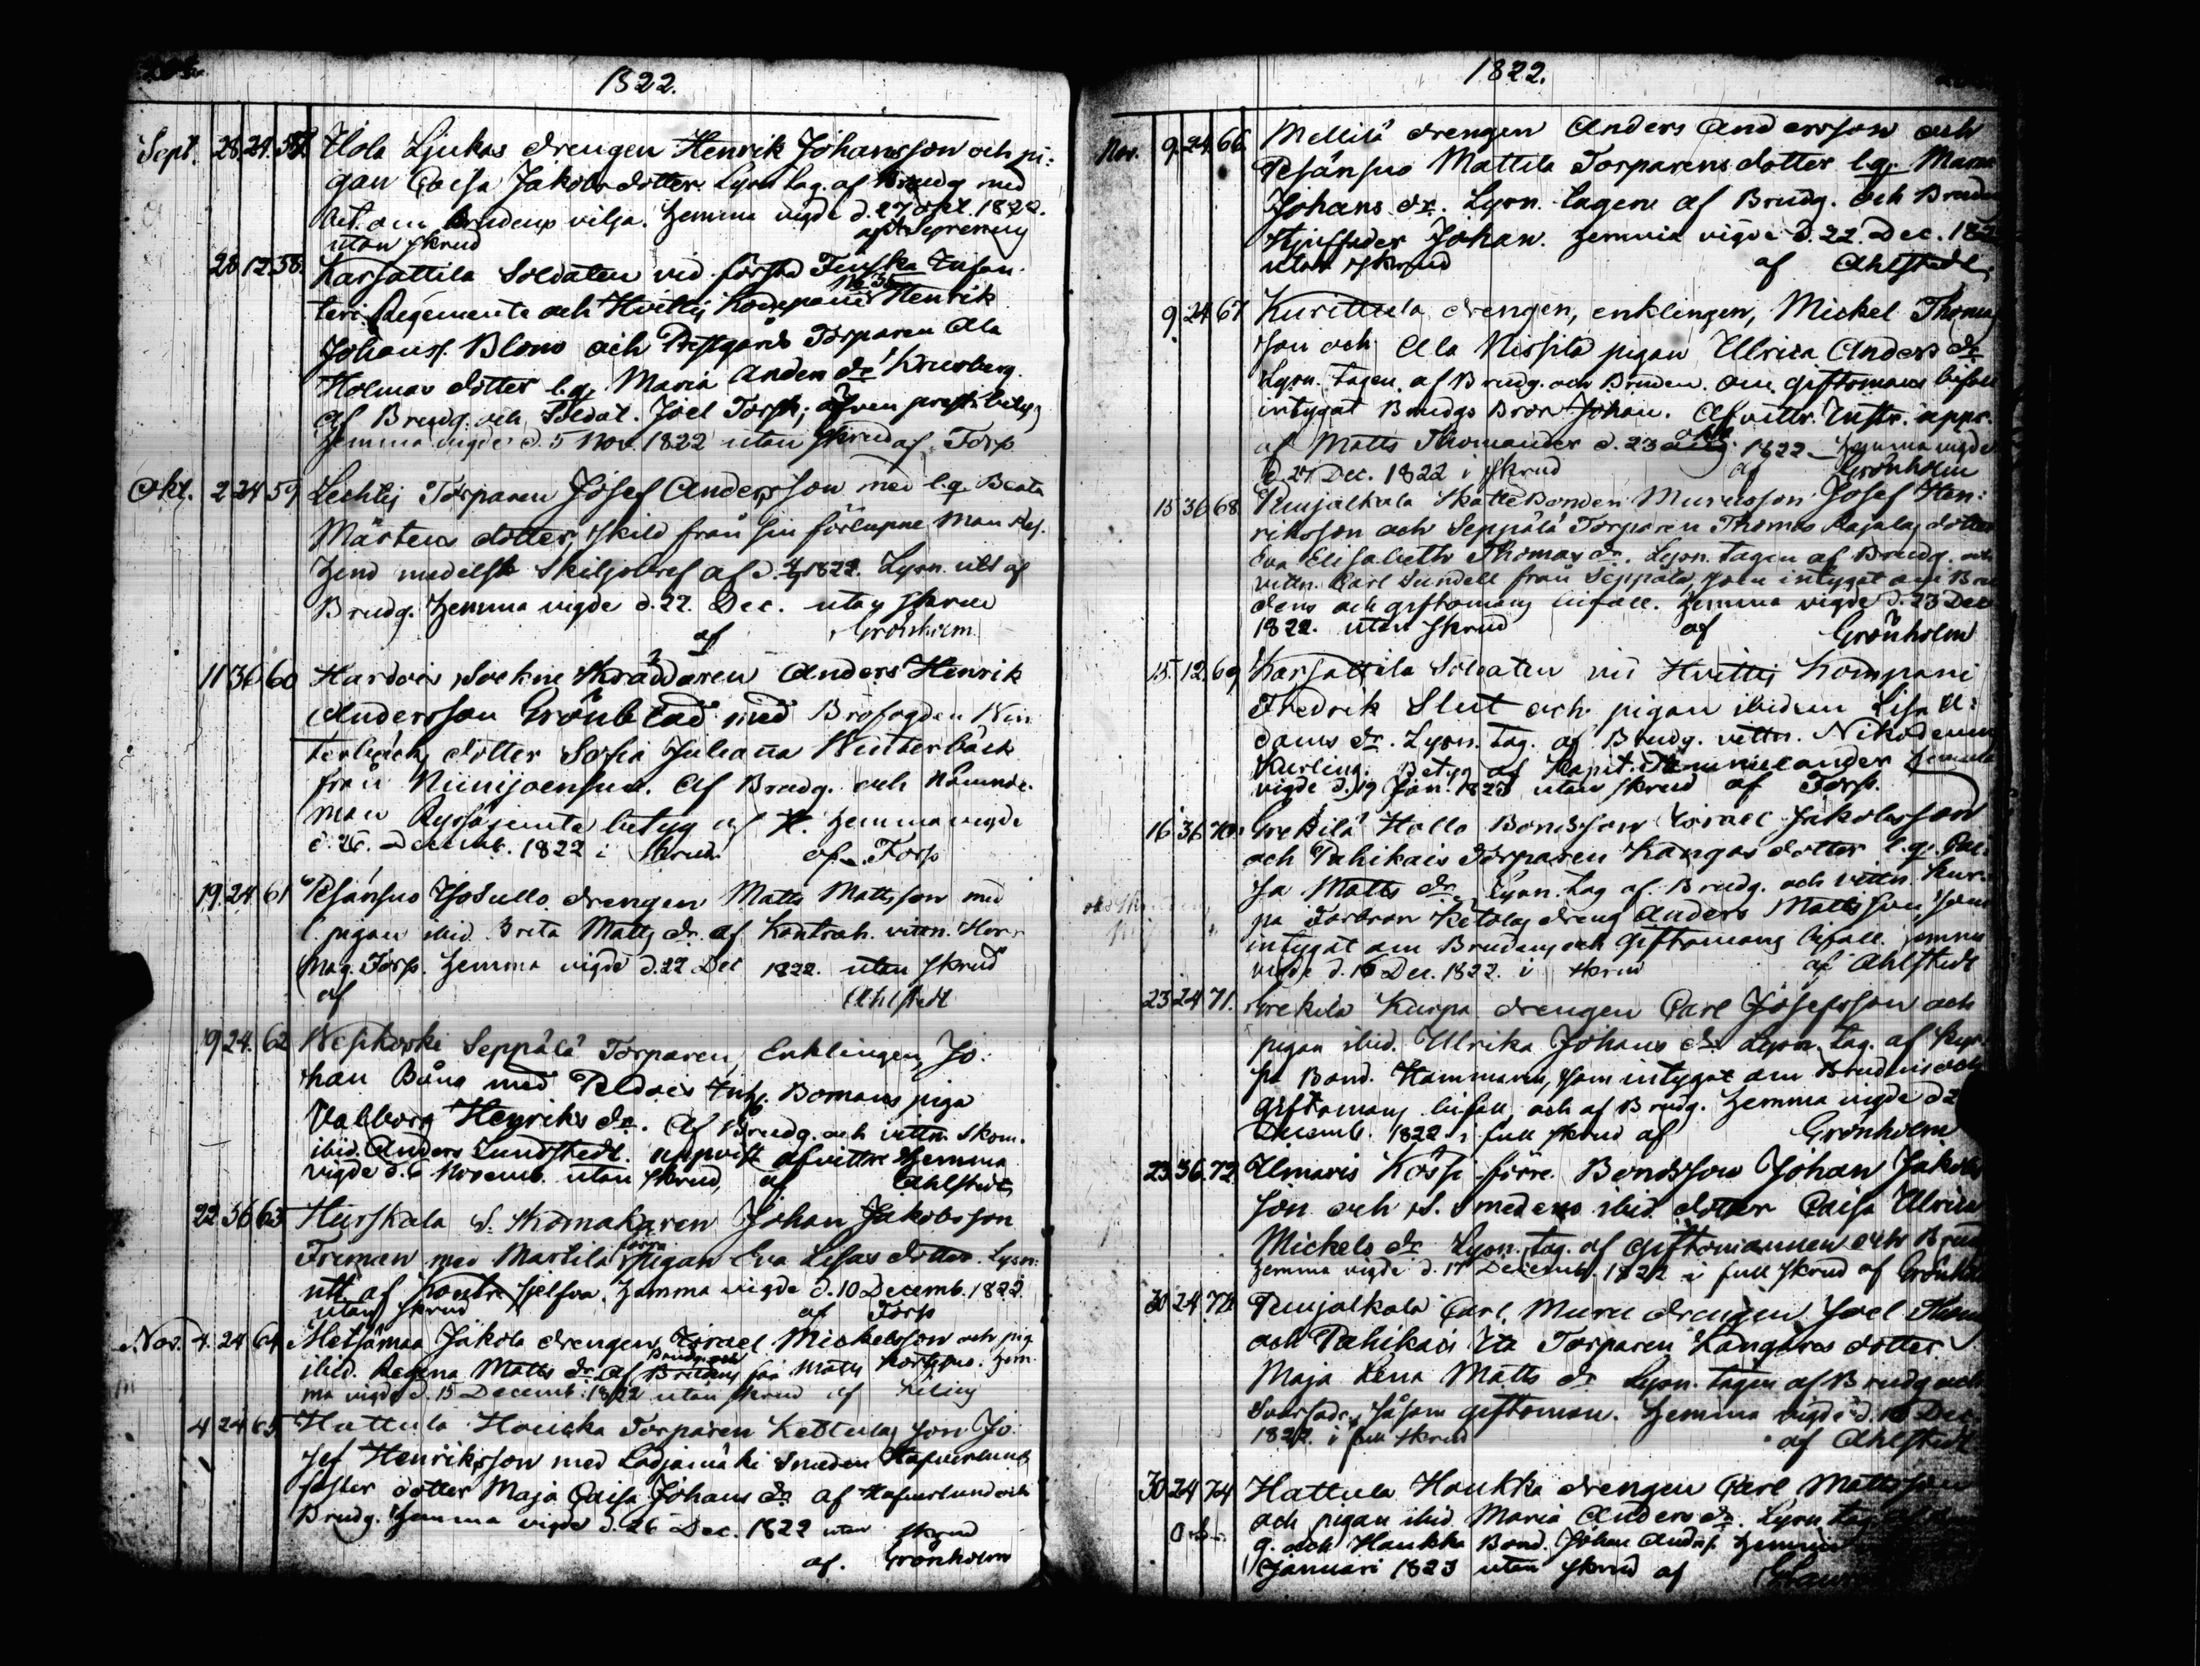 1822.
Sept. 28. 24. 57. Hola Ljukas drengen Henrik Johansson och pi-
gan Caisa Jakobs dotter. Lysn. tag. af Brudg. med
om Brudens vilja. Hemma vigde d. 27 1822.
utan skrud
28 12 58. Karsattila Soldaten vid första Finska Infan-
teri Regemente och Hvittis Kompanie N:o 35 Henrik
Johanss. Blom och Prestgårds Torparen Ala
Holmas dotter l.q. Maria Anders dr Kreusberg.
af Brudg. och Soldat. Joel Torp;
Hemma vigde d. 5 Nov. 1822 utan skrud af Torp
Okt. 2 24 59 Lechtis Torparen Josef Andersson med l.q. Beata
Mårtens dotter, skild från sin förlupne Man
medelst Skiljobref af d. 1822. Lysn. utt. af
Brudg. Hemma vigde d. 22. Dec. utan skrud
af Grönholm.
11 36 60 Hardois Sockne Skräddaren Anders Henrik
Andersson Grönblad med Brofogden Win-
terbäcks dotter Sofia Juliana Winterbäck
från Niinijoensuu. Af Brudg. och Nämnde-
man betyg af Hemma vigde
d. 26. Decemb. 1822 i Skrud. af Torp
19 24 61 Pesänsuo Josullo drengen Matts Mattsson med
l. pigan ibid. Brita Matts dr. af Kontrah. vittn. Herr
Mag. Torp. Hemma vigde d. 22 Dec 1822. utan skrud
af Ahlstedt
19 24. 62 Wesikoski Seppälä Torparen, Enklingen, Jo-
han Bång med Peldois Inh. Bomans piga
Valborg Henriks dr. Af Brudg. och vittn. Skom.
ibid. Anders Lundstedt. uppvist afvittr. Hemma
vigde d. 6 Novemb. utan skrud, af Ahlstedt
22 36 63 Hurskala S. Skomakaren Johan Jakobsson
Friman med Martila förra pigan Eva Lisas dotter. Lysn.
utt. af Kontr. sjelfva. Hemma vigde d. 10 Decemb. 1822.
utan skrud af Torp
Nov. 4. 24 64 Metsämaa Jakola drengen Israel Mickelsson och pig.
ibid. Regina Matts dr. Af Brudg. och Brudens far Matts Hem-
ma vigde d. 15 Decemb. 1822 utan skrud af
4 24 65 Hattula Houkka Torparen Kettulas son Jo-
sef Henriksson med Ladjamäki smeden Hafverlunds
foster dotter Maja Caisa Johans dr af Hafverlund och
Brudg. Hemma vigde d. 26 Dec. 1822 utan skrud
af. Grönholm
1822.
Nov. 9. 24 66. Mellilä drengen Anders Andersson och
Pesänsuo Mattila Torparens dotter l.q. Maria
Johans dr. Lysn. tagen af Brudg. och Brudens
Styffader Johan. Hemma vigde d. 22. Dec. 182
utan skrud af Ahlstedt.
9. 24 67 Kurittula drengen, enklingen, Mickel Thomas-
son och Ala Nissilä pigan Ulrica Anders dr
Lysn. tagen af Brudg. och Bruden. om giftomans bifall
intygat Brudgs Bror Johan. Afvittr. Instr. uppv.
af Matts Thomander d. 23 1822. Hemma vigde
d. 27 Dec. 1822 i skrud af Grönholm
15 36 68. Punjalkala Skatte Bonden Muruisson Josef Hen-
riksson och Seppälä Torparen Thomas Rajalas dotter
Eva Elisabeth Thomas dr. Lysn. tagen af Brudg. och
vittn. Carl Sundell från Seppälä, som intygat om Bru-
dens och giftomans bifall. Hemma vigde d. 23 Dec
1822. utan skrud af Grönholm
15. 12. 69 Karsattila Soldaten vid Hvittis Kompani
Fredrik Slut och pigan ibidem Lisa A-
dams dr. Lysn. tag. af Brudg. vittn. Nikodemus
Betyg af Kapit. Hemma
vigde d. 19 Jan. 1823 utan skrud af Torp.
16. 36 70. Grekilä Hollo Bondsson Israel Jakobsson
och Pahikais Torparen Kangas dotter l.q. Cai-
sa Matts dr. Lysn. tag af Brudg. och vittn. Kur-
pa Torbron Ketolas dreng Anders Mattsson, som
intygat om Brudens och Giftomans bifall. Hemma
vigde d. 16 Dec. 1822. i skrud af Ahlstedt
23 24 71. Grekila Kurpa drengen Carl Josefsson och
pigan ibid. Ulrika Johans dr. Lysn. tag. af Kur-
pa Bond. Hammaren, som intygat om Brudens och
Giftomans bifall och af Brudg. Hemma vigde d 2
Decemb. 1822 i full skrud af Grönholm
23. 36. 72. Ilmaris Kössi förre Bondsson Johan Jakobs-
son och S. Smedens ibid. dotter Caisa Ulrica
Mickels dr Lysn. tag. af Giftomannen och Brudg.
Hemma vigde d. 17 Decemb. 1822 i full skrud af Grönholm
30 24 73. Punjalkala Carl. Muru drengen Joel Thom
och Pahikais Torparen Längåros dotter
Maja Lena Matts dr Lysn. tagen af Brudg och
såsom giftoman. Hemma vigde d. 10 Dec.
1822. i full skrud af Ahlstedt
30 24 74 Hattula Houkka drengen Carl Mattsson
och pigan ibid. Maria Anders dr. Lysn. tag.
g. och Houkka Bond. Johan Anderss. Hemma
Januari 1823 utan skrud af